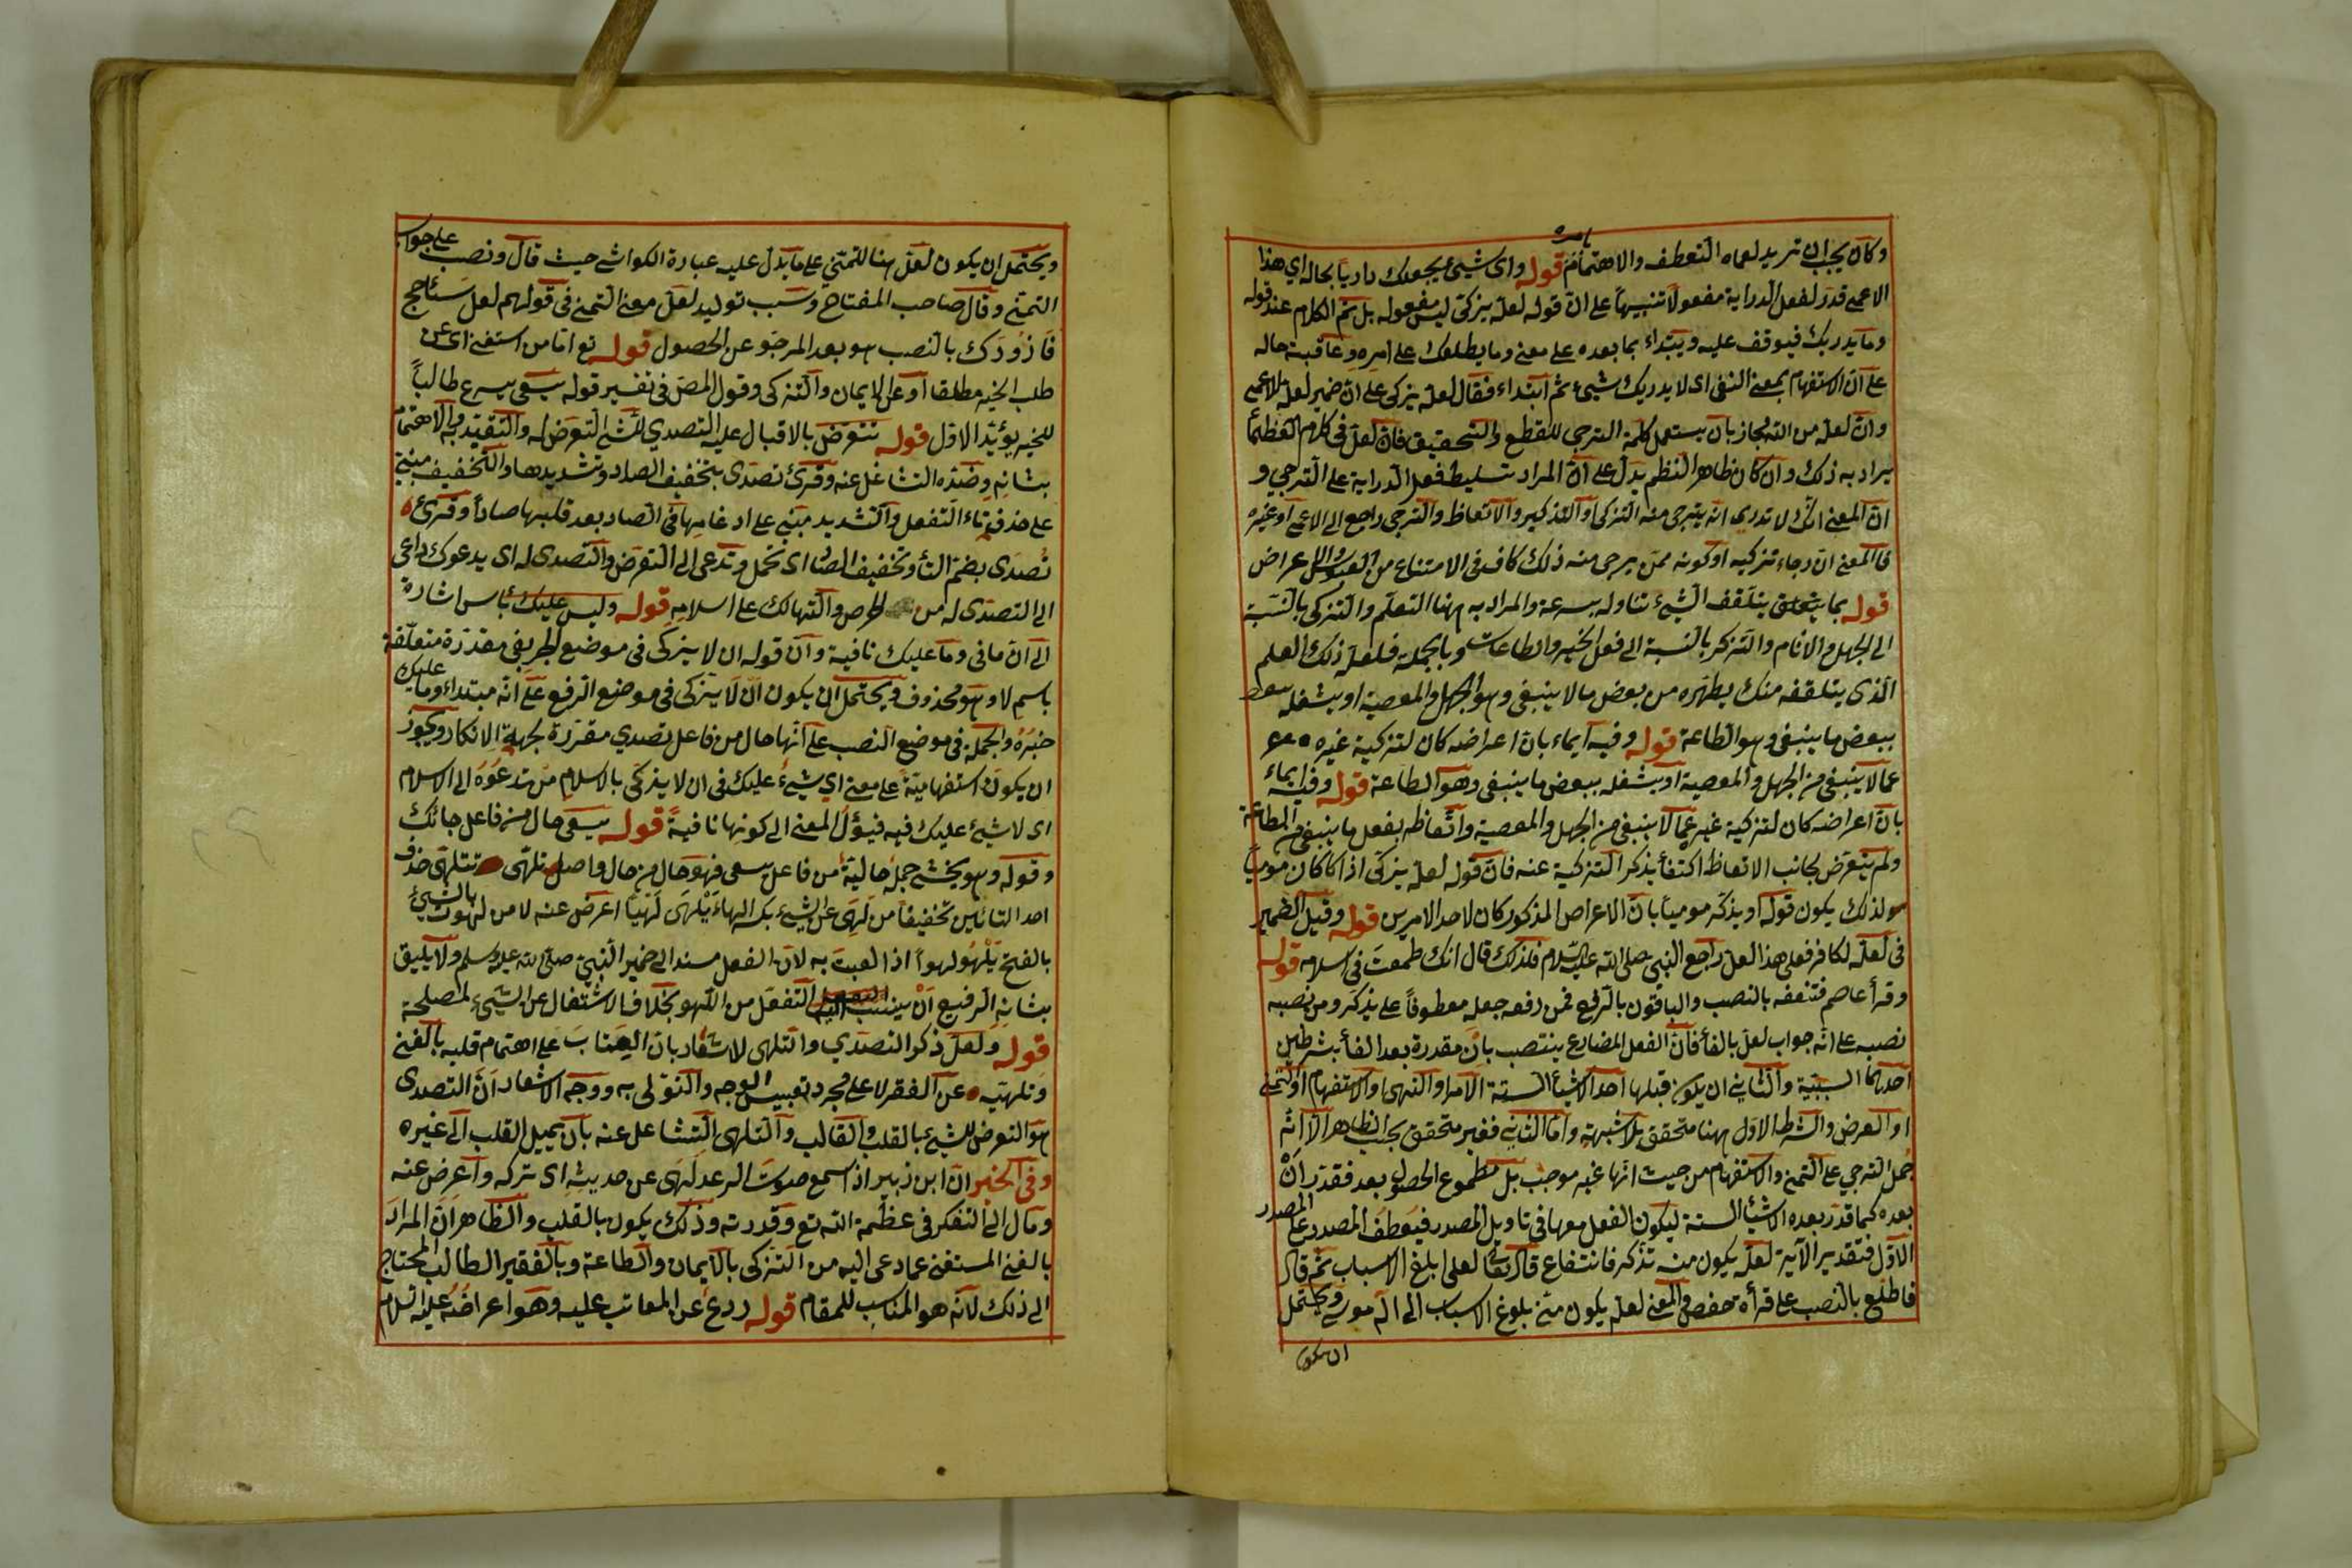 بامره
وكان يجب ان تريد لعماه التعطف والاهتمام قوله واى شئ يجعلك داريا بحاله اي هذا
الاعمى قدر لفعل الدراية مفعولا تنبيها على ان قوله لعله يزكى ليس مفعوله بل تم الكلام عند قوله
وما يدريك فيوقف عليه ويبتداء بما بعده على معنى وما يطلعك على امره وعاقبة حاله
على ان الاستفهام بمعنى النفى اى لا يدريك شئ ثم ابتداء فقال لعله يزكى على ان ضمير لعله للاعمى
وان لعل من الله مجاز بان يستعمل كلمة الترجي للقطع والتحقيق فان لعل في كلام العظماء
يراد به ذلك وان كان ظاهر النظم يدل على ان المراد تسليط فعل الدراية على الترجي و
ان المعنى انك لا تدري انه يترجى منه التزكى او التذكير والاتعاظ والترجى راجع الى الاعمى او غيره
فالمعنى ان رجاء تزكيه او كونه ممن يرجى منه ذلك كاف في الامتناع من العبوس والاعراض
قوله بما يتعلق يتلقف الشئ تناوله بسرعة والمراد به ههنا التعلم والتزكى بالنسبة
الى الجهل والاثام والتذكر بالنسبة الى فعل الخير والطاعات وبالجملة فلعله ذلك العلم
الذى يتلقفه منك يطهره من بعض ما لا ينبغى وهو الجهل والمعصية او يشغله
ببعض ما ينبغى وهو الطاعة قوله وفيه ايماء بان اعراضه كان لتزكية غيره
عما لا ينبغى من الجهل والمعصية او يشغله ببعض ما ينبغى وهو الطاعة قوله وفيه ايماء
بان اعراضه كان لتزكية غيره عما لا ينبغى من الجهل والمعصية واتعاظه بفعل ما ينبغى من الطاعة
ولم يتعرض بجانب الاتعاظ اكتفاء بذكر التزكية عنه فان قوله لعله يزكى اذا كان موميا
لذلك يكون قوله او يذكر موميا بان الاعراض المذكور كان لاحد الامرين قوله وقيل الضمير
فى لعله لكافر فعلى هذا لعل راجع النبي صلى الله عليه السلام فلذلك قال انك طمعت فى اسلامه قوله
وقرأ عاصم فتنفعه بالنصب والباقون بالرفع فمن رفعه جعله معطوفا على يذكر ومن نصبه
نصبه على انه جواب لعل بالفاء فان الفعل المضارع ينتصب بان مقدرة بعد الفاء بشرطين
احدهما السببية والثاني ان يكون قبلها احد الاشياء الستة الامر والنهى والاستفهام او التمنى
او العرض والشرط الاول ههنا متحقق بلا شبهة واما الثاني فغير متحقق بحسب الظاهر الا انه
حمل الترجي على التمني والاستفهام من حيث انها غير موجب بل مطموع الحصول بعد فقدر ان
بعده كما قدر بعده الاشياء الستة ليكون الفعل معها في تاويل المصدر فيعطف المصدر على المصدر
الاول فتقدير الآية لعله يكون منه تذكر فانتفاع قال تعالى لعلى ابلغ الاسباب ثم قال
فاطلع بالنصب على قرأة حفص والمعنى لعله يكون منى بلوغ الاسباب الى اله موسى ويحتمل
ان يكون
ويحتمل ان يكون لعل ههنا للتمني على ما يدل عليه عبارة الكواشى حيث قال ونصب على جواب
التمنى وقال صاحب المفتاح وسبب توليد لعل معنى التمنى فى قولهم لعل سأحج
فازورك بالنصب هو بعد المرجو عن الحصول قوله تع اما من استغنى اى عن
طلب الخير مطلقا او عن الايمان والتزكى وقول المص فى تفسير قوله يسعى يسرع طالبا
للخير يؤيد الاول قوله تتعرض بالاقبال عليه التصدي للشئ التعرض له والتقيد به والاهتمام
بشانه وضده التشاغل عنه وقرئ تصدى بتخفيف الصاد وتشديدها والتخفيف مبنى
على حذف تاء التفعل والتشديد مبنى على ادغامها فى الصاد بعد قلبها صادا وقرئ
تصدى بضم التاء وتخفيف الصاد اى تحمل وتدعى الى التعرض والتصدى له اى يدعوك داعى
الى التصدى له من الحرص والتهالك على اسلامه قوله وليس عليك بأس اشارة
الى ان ما فى وما عليك نافية وان قوله ان لا يزكى فى موضع الجر بفى مقدرة متعلقة
باسم لا وهو محذوف ويحتمل ان يكون ان لا يزكى فى موضع الرفع على انه مبتداء وما عليك
خبره والجملة فى موضع النصب على انها حال من فاعل تصدي مقررة لجهة الانكار ويجوز
ان يكون استفهامية على معنى اي شئ عليك فى ان لا يزكى بالاسلام من تدعوه الى الاسلام
اى لا شئ عليك فيه فيؤل المعنى الى كونها نافية قوله يسعى حال من فاعل جائك
وقوله وهو يخشى جملة حالية من فاعل يسعى فهو حال من حال واصل تلهى تتلهى حذف
احد التائين تخفيفا من لهى عن الشئ بكسر الهاء يلهى لهيا اعرض عنه لا من لهوت بالشئ
بالفتح يلهو لهوا اذا لعبت به لان الفعل مسند الى ضمير النبي صلى الله عليه وسلم ولا يليق
بشانه الرفيع ان ينسب اليه التفعل من اللهو بخلاف الاشتغال عن الشئ لمصلحة
قوله ولعل ذكر التصدي والتلهى للاشعار بان العتاب على اهتمام قلبه بالغنى
وتلهيه عن الفقير لا على مجرد تعبيس الوجه والتولى به ووجه الاشعار ان التصدى
هو التعرض للشئ بالقلب والقالب والتلهى التشاغل عنه بان يميل القلب الى غيره
وفى الخبر ان ابن زبير اذا سمع صوت الرعد لهى عن حديثه اى تركه واعرض عنه
ومال الى التفكر فى عظمة الله تع وقدرته وذلك يكون بالقلب والظاهر ان المراد
بالغنى المستغنى عما دعى اليه من التزكى بالايمان والطاعة وبالفقير الطالب المحتاج
الى ذلك لانه هو المناسب للمقام قوله ردع عن المعاتب عليه وهو اعراضه عليه السلام